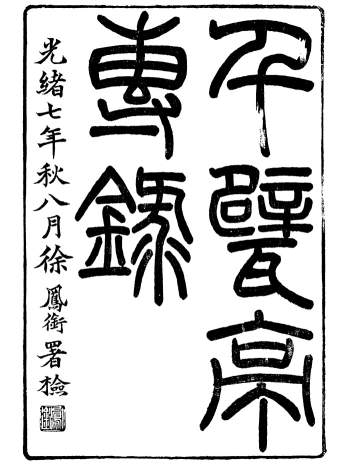 千甓亭
專錄
光緒七年秋八月徐鳳銜署檢